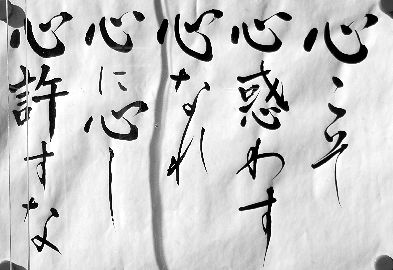 心こそ
心惑わす
心なれ
心に心し
心許すな